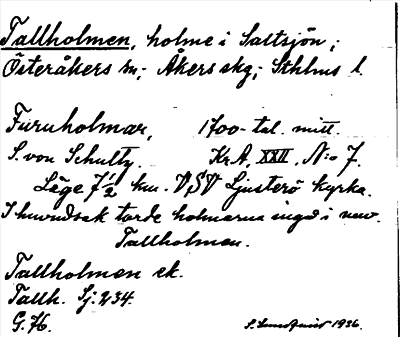 Tallholmen, holme i Saltsjön;
Österåkers sn; Åkers skg; Sthlms l.
Furuholmar, 1700-tal. mitt.
S. von Schultz. Kr.A, XXII, No 7.
Läge 7 1/2 km. VSV Ljusterö kyrka.
I huvudsak torde holmarna ingå i nuv.
Tallholmen.
Tallholmen ek.
Tallh. Sj. 234.
G. 76.
S. Lundqvist 1936.